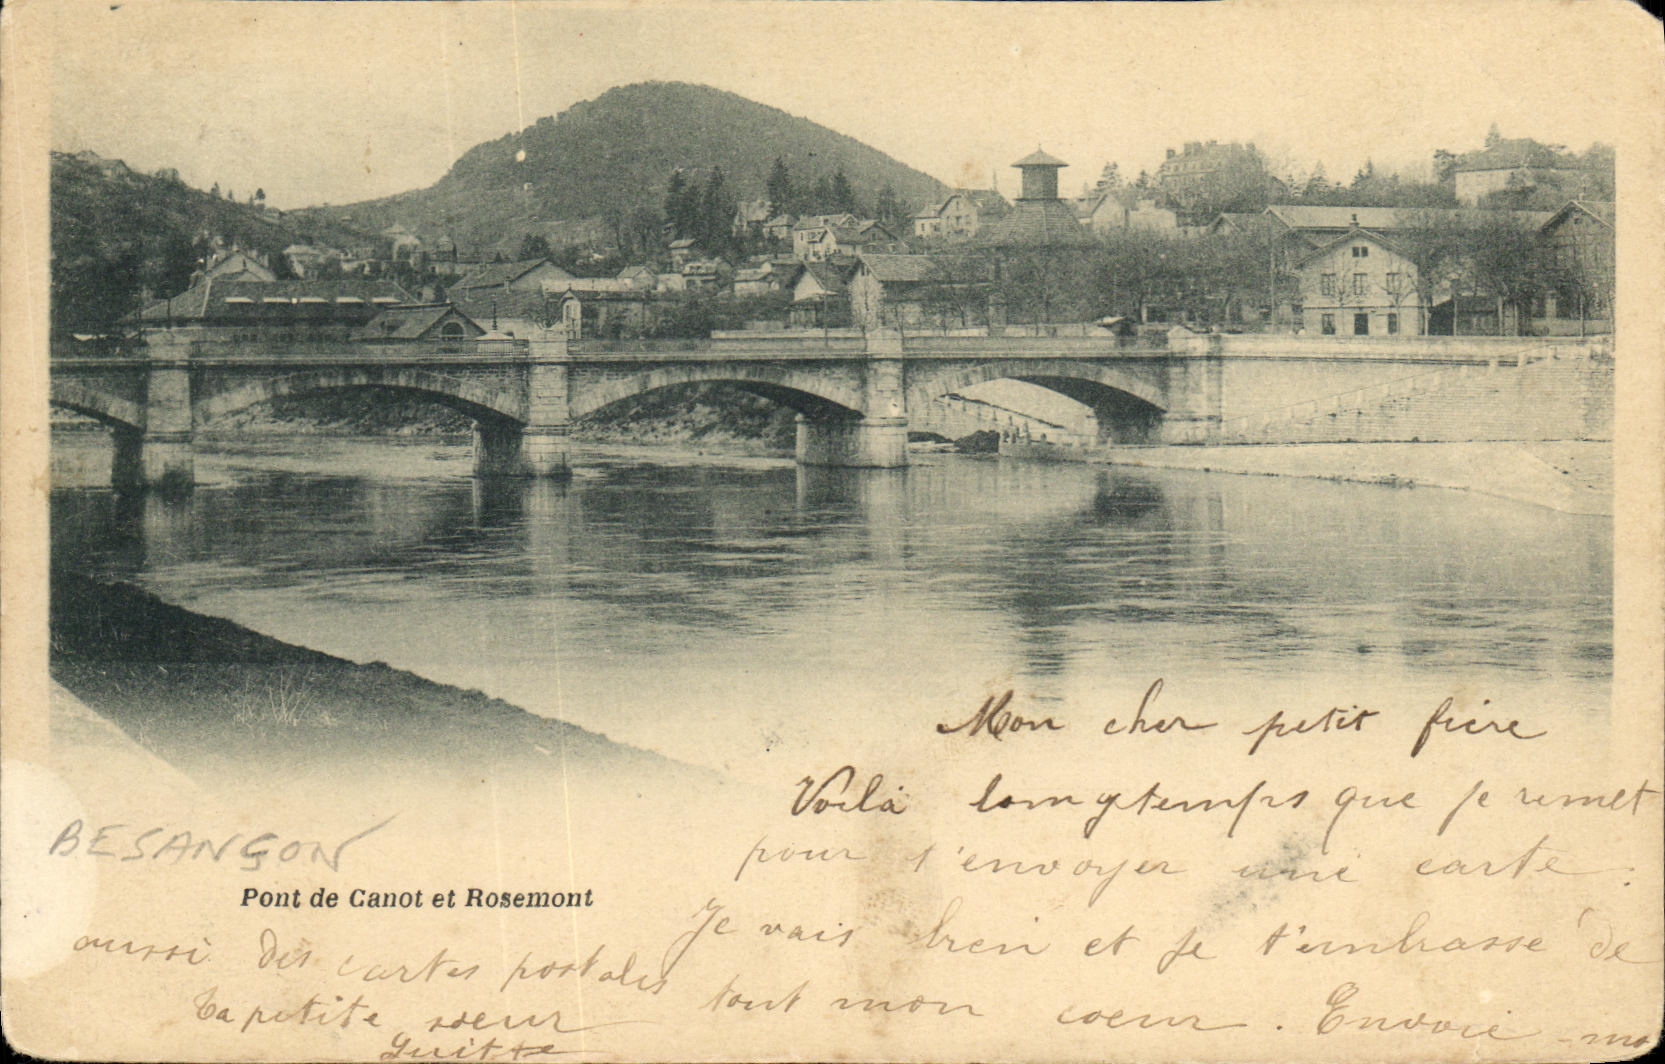 Mon cher petit frère
Voilà longtemps que je remet
pour t'envoyer une carte.
Je vais bien et je t'embrasse de
tout mon coeur. Envoie-mo
aussi des cartes postales
Ta petite soeur
BESANÇON
Pont de Canot et Rosemont